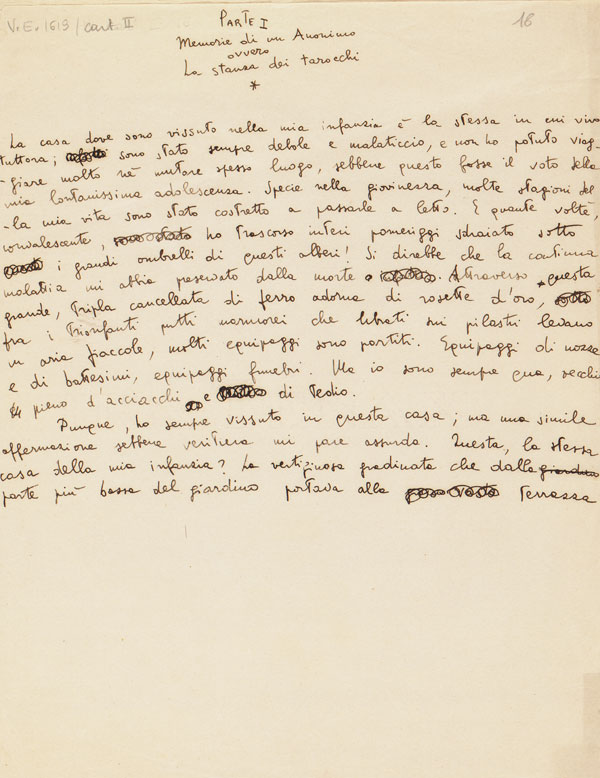 V.E. 1619 / cart. II
18
PARTE I
Memorie di un Anonimo
ovvero
La stanza dei tarocchi
*
La casa dove sono vissuto nella mia infanzia è la stessa in cui vivo
tuttora; sono stato sempre debole e malaticcio, e non ho potuto viag-
giare molto nè mutare spesso luogo, sebbene questo fosse il voto della
mia lontanissima adolescenza. Specie nella giovinezza, molte stagioni del-
la mia vita sono stato costretto a passarle a letto. E quante volte,
convalescente, ho trascorso interi pomeriggi sdraiato sotto
i grandi ombrelli di questi alberi! Si direbbe che la continua
malattia mi abbia preservato dalla morte. Attraverso questa
grande, tripla cancellata di ferro adorna di rosette d'oro,
fra i trionfanti putti marmorei che librati sui pilastri levano
in aria fiaccole, molti equipaggi sono partiti. Equipaggi di nozze
e di battesimi, equipaggi funebri. Ma io sono sempre qua, vecchio
pieno d'acciacchi e di tedio.
Dunque, ho sempre vissuto in questa casa; ma una simile
affermazione sebbene veritiera mi pare assurda. Questa, la stessa
casa della mia infanzia? La vertiginosa gradinata che dalla giardino
parte più bassa del giardino portava alla terrazza